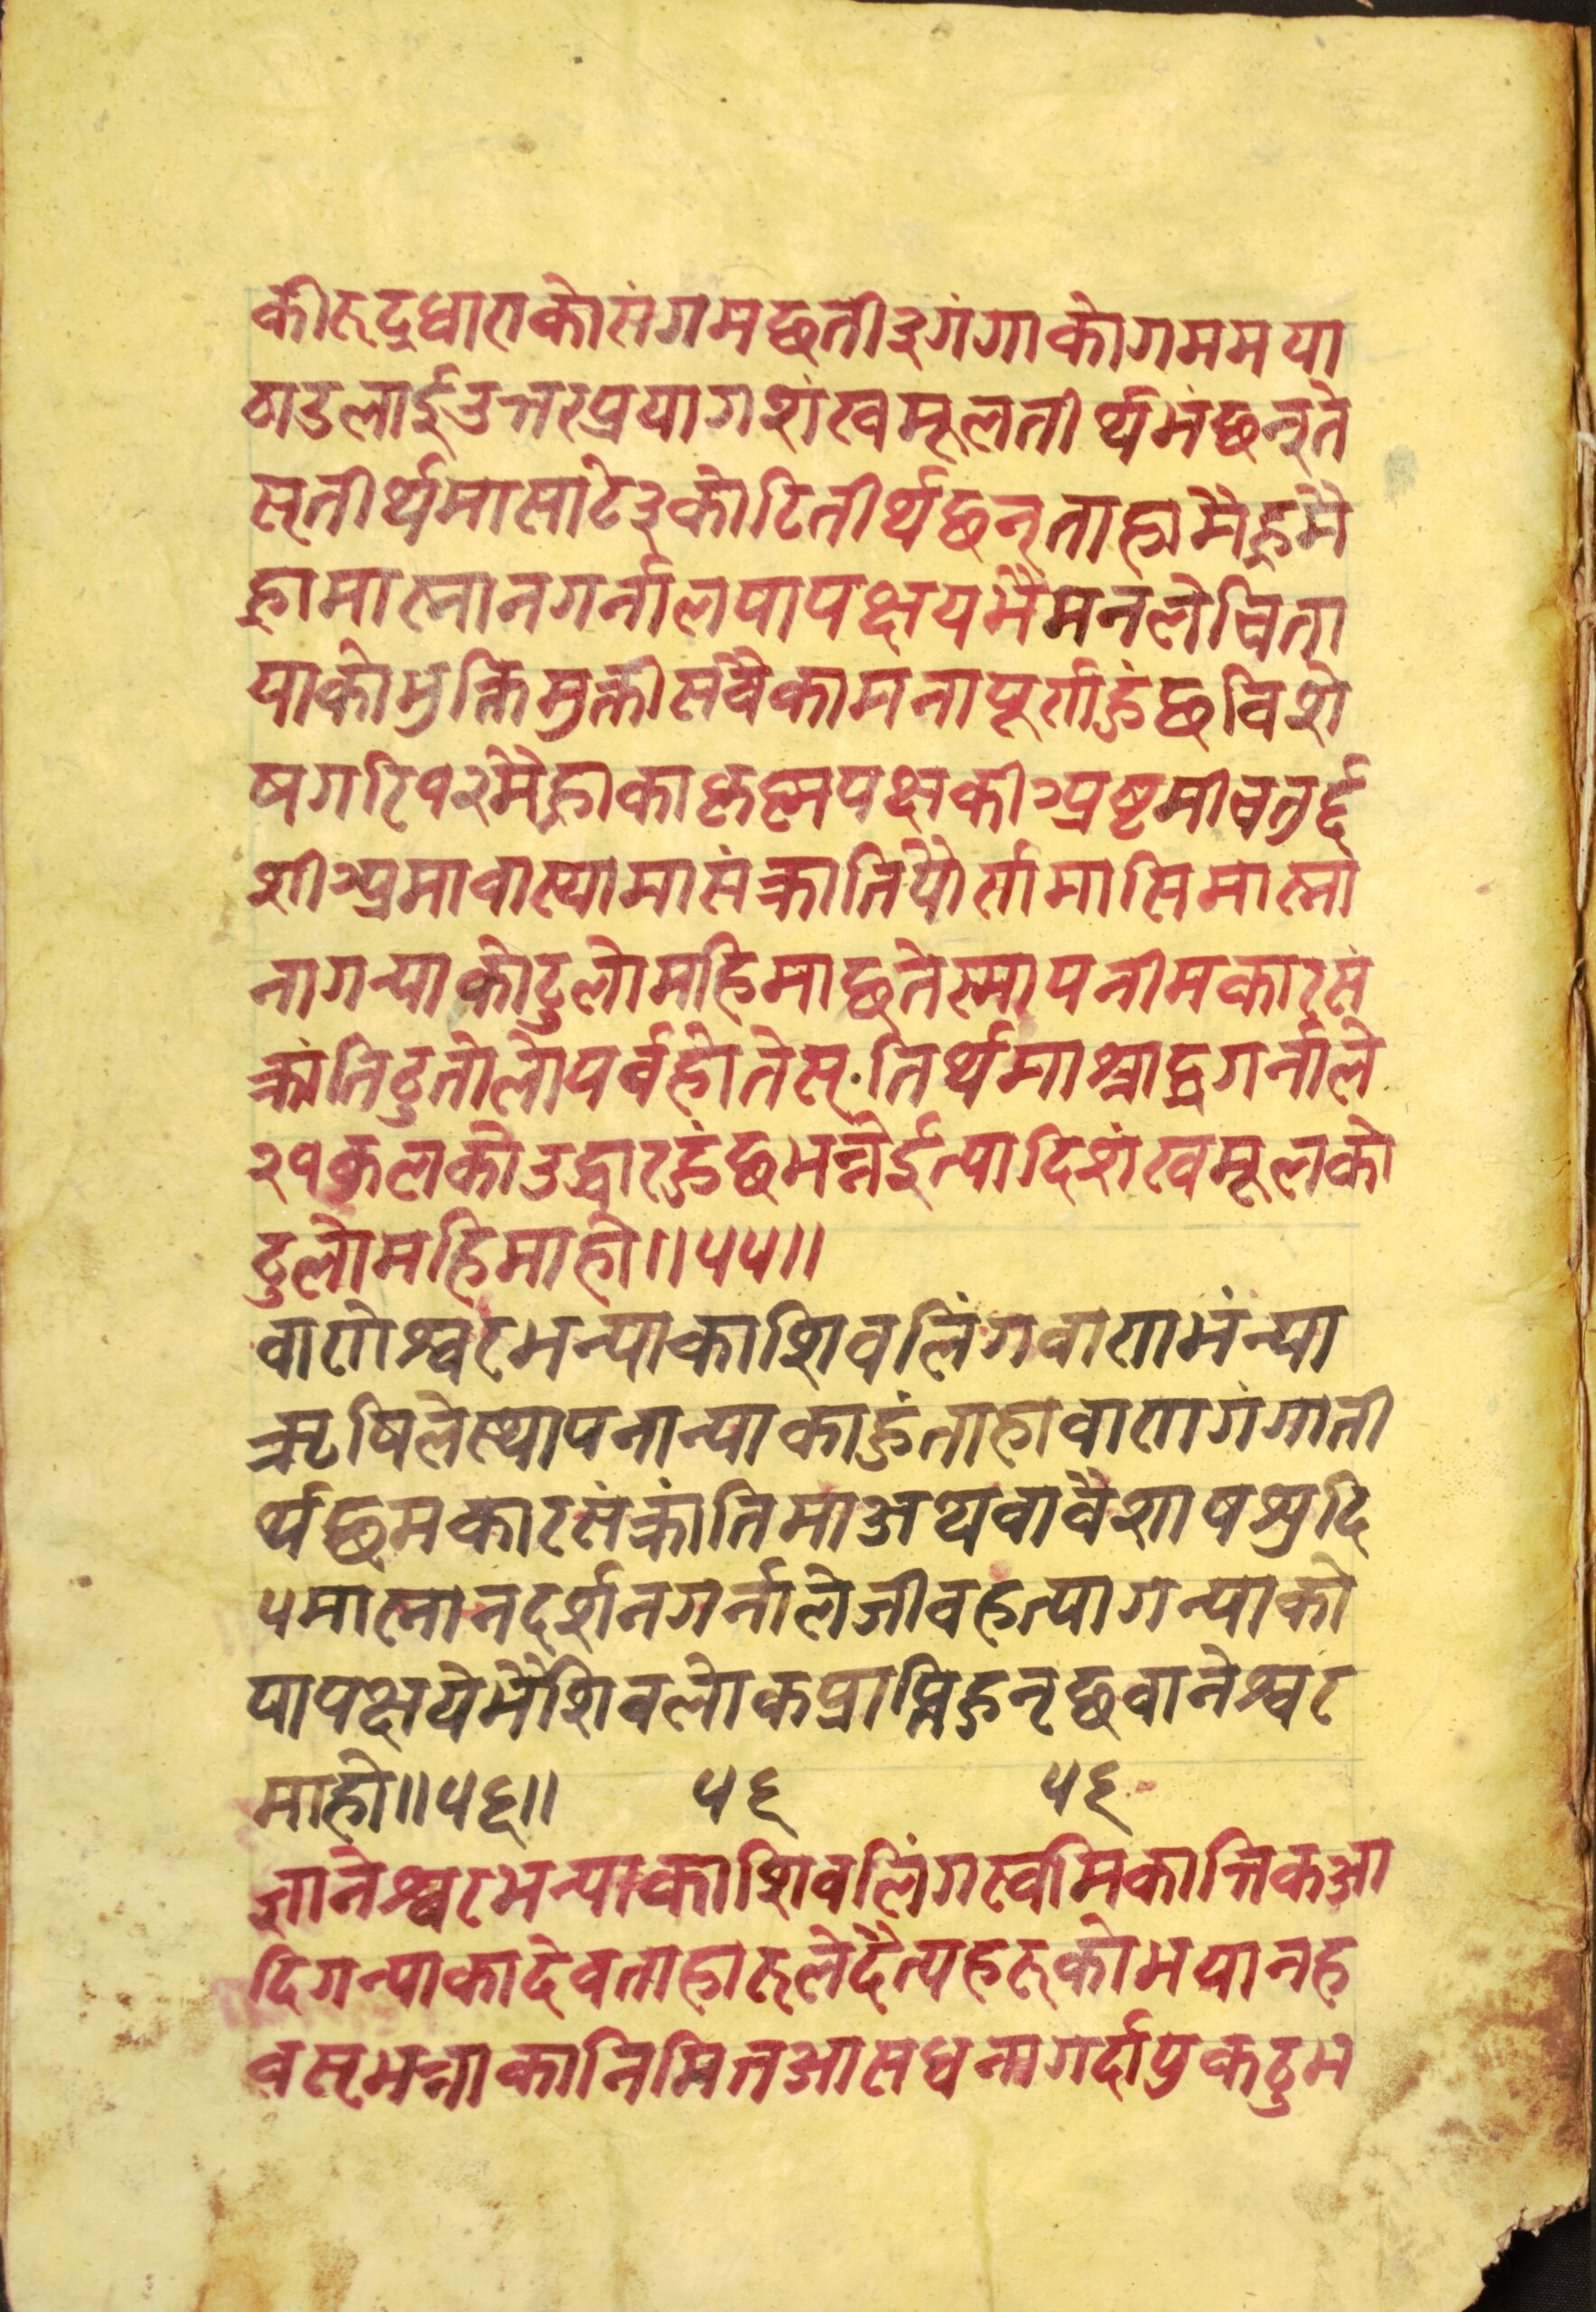 कीरूद्रधाराकोसंगमछती३गंगाकोगममया
ठाउलाईउत्तरप्रयागशंखमूलतीर्थभंछन्ते
स्तीर्थमासाटे३कोटितीर्थछन्ताहामैह्रमै
ह्रामास्नानगर्नालपापक्षयभैमनलेचिता
याकोभुक्तिमुक्तीसवैकामनापूर्णहुंछविशे
षगरि१२मैह्राकाकृष्णपक्षकीअष्टमीचतुर्द
शीअमावास्यामासंक्रातिपौर्णमासिमास्नो
नागन्याकोठुलोमहिमाछतेस्मापनीमकारसं
क्रांतिठुलोलोपर्वहोतेस्तिर्थमाश्राद्धगर्नाले
२१कुलकोउद्धारहुंछभन्नेईत्यादिशंखमूलको
ठुलोमहिमाहो॥५५॥
वाणेश्वरभन्याकाशिवलिंगवाणभंन्या
ऋषिलेस्थापनान्याकाहुंताहावाणगंगाती
र्थछमकारसंक्रांतिमाअथवावैशाषश्रुदि
५मास्नानदर्शनगर्नालेजीवहत्यागन्याको
पापक्षयेभैशिवलोकप्राप्तिहुन्छवानेश्वर
माहो॥५६॥ ५६ ५६
ज्ञानेश्वरभन्याकाशिवलिंगस्वमिकार्त्तिकआ
दिगन्याकादेवताहारूलेदैत्यहरूकोभयानह
वस्भन्नाकानिमित्तआसधनागर्दाप्रकठुभ